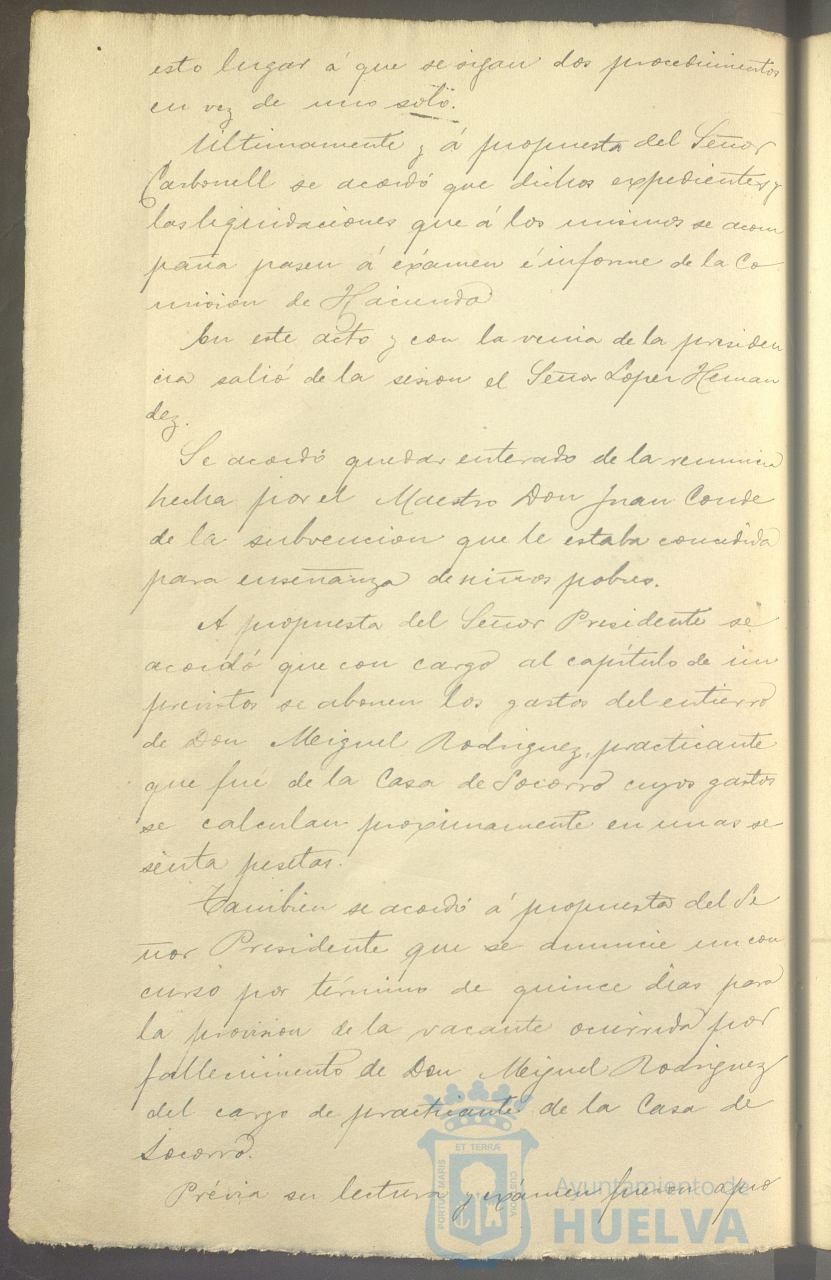 esto lugar á que se sigan dos procedimientos
en vez de uno solo.
Ultimamente y á propuesta del Señor
Carbonell se acordó que dichos expedientes y
las liquidaciones que á los mismos se acom
paña pasen á exámen é informe de la Co
mision de Hacienda
En este acto y con la venia de la presiden
cia salió de la sesion el Señor Lopez Hernan
dez.
Se acordó quedar enterado de la renuncia
hecha por el Maestro Don Juan Conde
de la subvencion que le estaba concedida
para enseñanza de niños pobres.
A propuesta del Señor Presidente se
acordó que con cargo al capítulo de im
previstos se abonen los gastos del entierro
de Don Miguel Rodriguez, practicante
que fué de la Casa de Socorro cuyos gastos
se calculan proximamente en unas se
senta pesetas.
Tambien se acordó á propuesta del Se
ñor Presidente que se anuncie un con
curso por término de quince dias para
la provision de la vacante ocurrida por
fallecimiento de Don Miguel Rodriguez
del cargo de practicante de la Casa de
Socorro.
Prévia su lectura y exámen fueron apro
ET TERRÆ
PORTUS MARIS
CUSTODIA
Ayuntamiento de
HUELVA